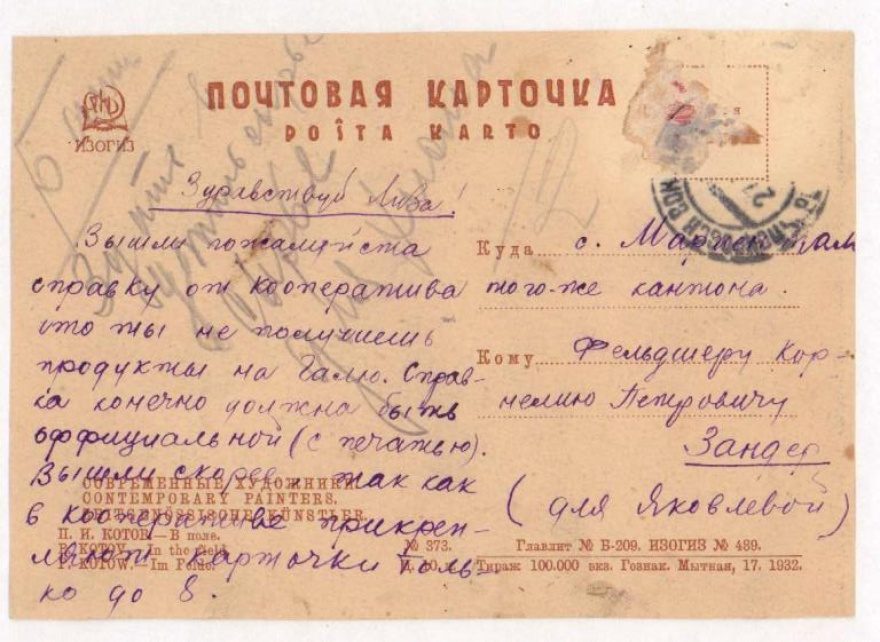 ПОЧТОВАЯ КАРТОЧКА
POŜTA KARTO
ИЗОГИЗ
Здравствуй Лиза!
Вышли пожалуйста
справку от кооператива
что ты не получаешь
продукты на Галю. Справ-
ка конечно должна быть
оффициальной (с печатью).
Вышли скорее, так как
в кооперативе прикреп-
ляют карточки толь-
ко до 8.
Куда с. Мариенталь
того-же кантона.
Кому Фельдшеру Кор-
нелию Петровичу
Зандер
(для Яковлевой)
СОВРЕМЕННЫЕ ХУДОЖНИКИ
CONTEMPORARY PAINTERS.
ZEITGENÖSSISCHE KÜNSTLER
П. И. КОТОВ.—В поле.
P. KOTOV.—In the field.
P. KOTOW.—Im Felde.
№ 373.
Ц. 10 к.
Главлит № Б-209. ИЗОГИЗ № 489.
Тираж 100.000 экз. Гознак. Мытная, 17. 1932.